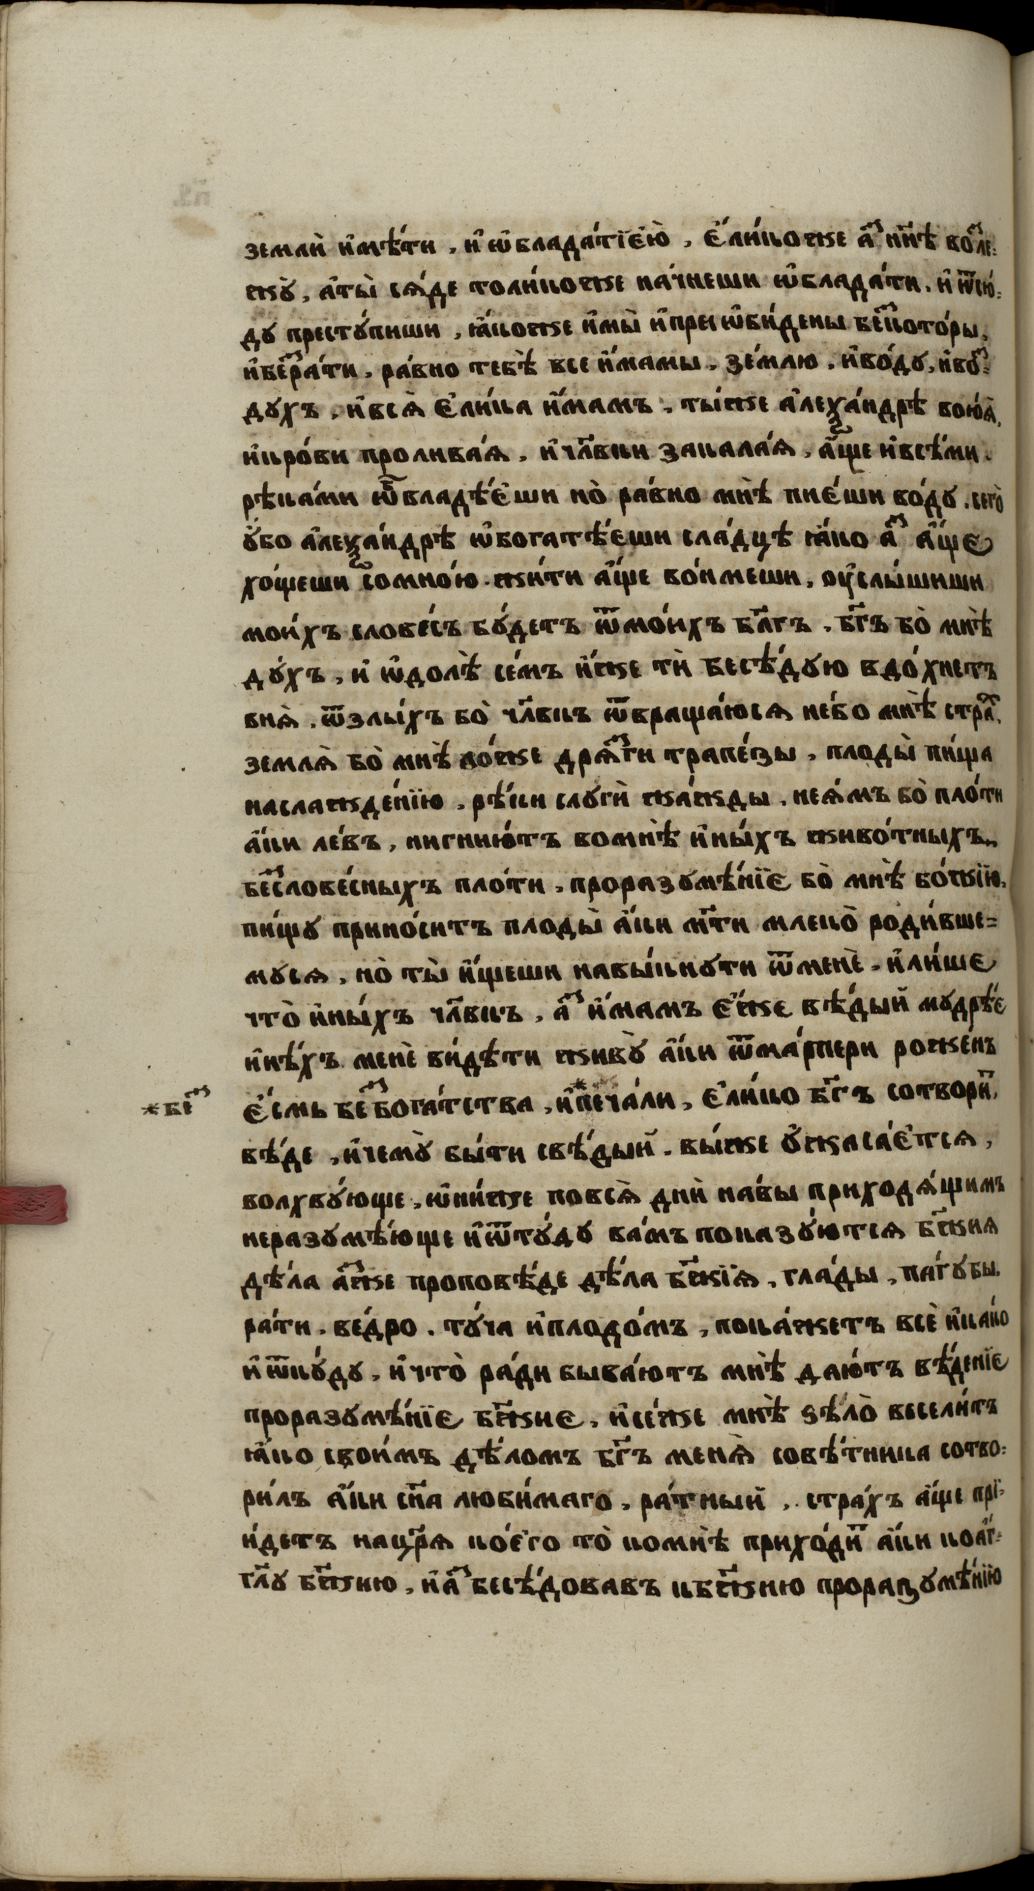 землѝ и҆мѣ́ти , и҆ ѡ҆блада́тїе́ю̀ , є҆ли́коже а҆́з ны́нѣ во́зле=
жꙋ̀ , а҆ты̀ ся́де толи́коже на́чнеши ѡ҆блада́ти . и҆ ѿсю́=
дꙋ престꙋ́пиши , ꙗ҆́коже и҆мы̀ и҆ при ѡ҆би́дены бе́ското́ры ,
и҆бе́зра́ти , ра́вно тебѣ̀ все и҆́мамы , зе́млю , и҆во́дꙋ , и҆во́з=
дꙋхъ , и҆вся̀ є҆ли́ка и҆́мамъ , ты́же а҆леѯа́ндрѣ вою́ѧ ,
и҆кро́ви пролива́ѧ , и҆ чл҃вки закала́ѧ , а҆́ще и҆всѣ́ми .
рѣка́ми ѡ҆бладѣ́еши но̀ ра́вно мнѣ̀ пїе́ши во́дꙋ . сего̀
ᲂу҆́бо а҆леѯа́ндрѣ ѡ҆богатѣ́еши сла́дцѣ ꙗ҆́ко а҆́з а҆́ще
хо́щеши сомно́ю жи́ти а҆́ще во́нмеши , ᲂу҆слы́шиши
мои́хъ слове́съ бꙋ́детъ ѿмо́ихъ бл҃гъ . бг҃ъ бо̀ мнѣ̀
дꙋ́хъ , и҆ ѡ҆долѣ̀ се́мъ и҆́же тѝ бесѣ́дꙋю вдо́хнетъ
вня̀ . ѿзлы́хъ бо̀ чл҃вкъ ѿвраща́юся не́бо мнѣ̀ стра́х .
земля̀ бо̀ мнѣ̀ ло́же дря́зги трапе́зы , плоды̀ пи́ща
наслажде́нїю , рѣ́ки слꙋгѝ жа́жды , нея́мъ бо̀ пло́ти
а҆́ки ле́въ , нигнию́тъ вомнѣ̀ и҆ны́хъ живо́тныхъ
бе́слове́сныхъ пло́ти , проразꙋмѣ́нїе бо̀ мнѣ̀ бо́жїю ,
пи́щꙋ прино́ситъ плоды̀ а҆́ки мт҃и млеко̀ роди́вше=
мꙋся , но̀ ты̀ и҆́щеши навы́кнꙋти ѿменѐ . и҆ли́ше
что̀ и҆ны́хъ чл҃вкъ , а҆́з и҆́мамъ є҆́же вѣ́дый мꙋдрѣ́е
и҆нѣ́хъ менѐ ви́дѣти живꙋ̀ а҆́ки ѿма́тери роженъ
є҆́смь без бога́тства , и҆*печа́ли , є҆ли́ко бг҃ъ сотвори́т ,
*без
вѣ́де , и҆чемꙋ̀ бы́ти свѣ́дый . вы́же ᲂу҆жаса́ется ,
волхвꙋ́юще , ѡ҆ни́же повся̀ днѝ на́вы приходя́щимъ
неразꙋмѣ́юще и҆ѿтꙋ́дꙋ ва́мъ показꙋ́ются бж҃ия
дѣ́ла а҆́зже проповѣ́де дѣ́ла бж҃їя , гла́ды , па́гꙋбы .
ра́ти . ве́дро . тꙋ́ча и҆плодо́мъ , пока́жетъ всѐ и҆ка́ко
и҆ ѿкꙋ́дꙋ , и҆ что̀ ра́ди быва́ютъ мнѣ̀ даю́тъ вѣ́денїе
проразꙋмѣ́нїе бж҃ие , и҆се́же мнѣ̀ ѕѣ́лѡ̀ весели́тъ
ꙗ҆́ко свои́мъ дѣ́ломъ бг҃ъ меня̀ совѣ́тника сотво=
ри́лъ а҆́ки сн҃а люби́маго , ра́тный , страхъ а҆́ще прї=
и́детъ нацр҃я ко́его то̀ комнѣ̀ прихо́дит а҆́ки коа҆́г=
г҃лꙋ бж҃ию , и҆ а҆́з бесѣ́довавъ кбж҃ию проразꙋмѣ́нїю